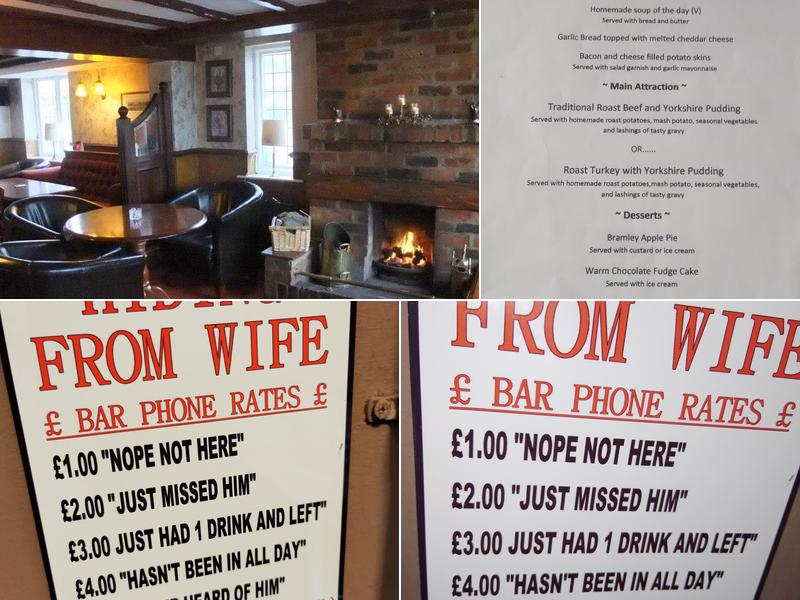 Homemade soup of the day (V)
Served with bread and butter
Garlic Bread topped with melted cheddar cheese
Bacon and cheese filled potato skins
Served with salad garnish and garlic mayonnaise
~ Main Attraction ~
Traditional Roast Beef and Yorkshire Pudding
Served with homemade roast potatoes, mash potato, seasonal vegetables
and lashings of tasty gravy
OR......
Roast Turkey with Yorkshire Pudding
Served with homemade roast potatoes,mash potato, seasonal vegetables,
and lashings of tasty gravy
~ Desserts ~
Bramley Apple Pie
Served with custard or ice cream
Warm Chocolate Fudge Cake
Served with ice cream
HIDING
FROM WIFE
£ BAR PHONE RATES £
£1.00 "NOPE NOT HERE"
£2.00 "JUST MISSED HIM"
£3.00 JUST HAD 1 DRINK AND LEFT"
£4.00 "HASN'T BEEN IN ALL DAY"
HEARD OF HIM"
FROM WIFE
£ BAR PHONE RATES £
£1.00 "NOPE NOT HERE"
£2.00 "JUST MISSED HIM"
£3.00 JUST HAD 1 DRINK AND LEFT"
£4.00 "HASN'T BEEN IN ALL DAY"